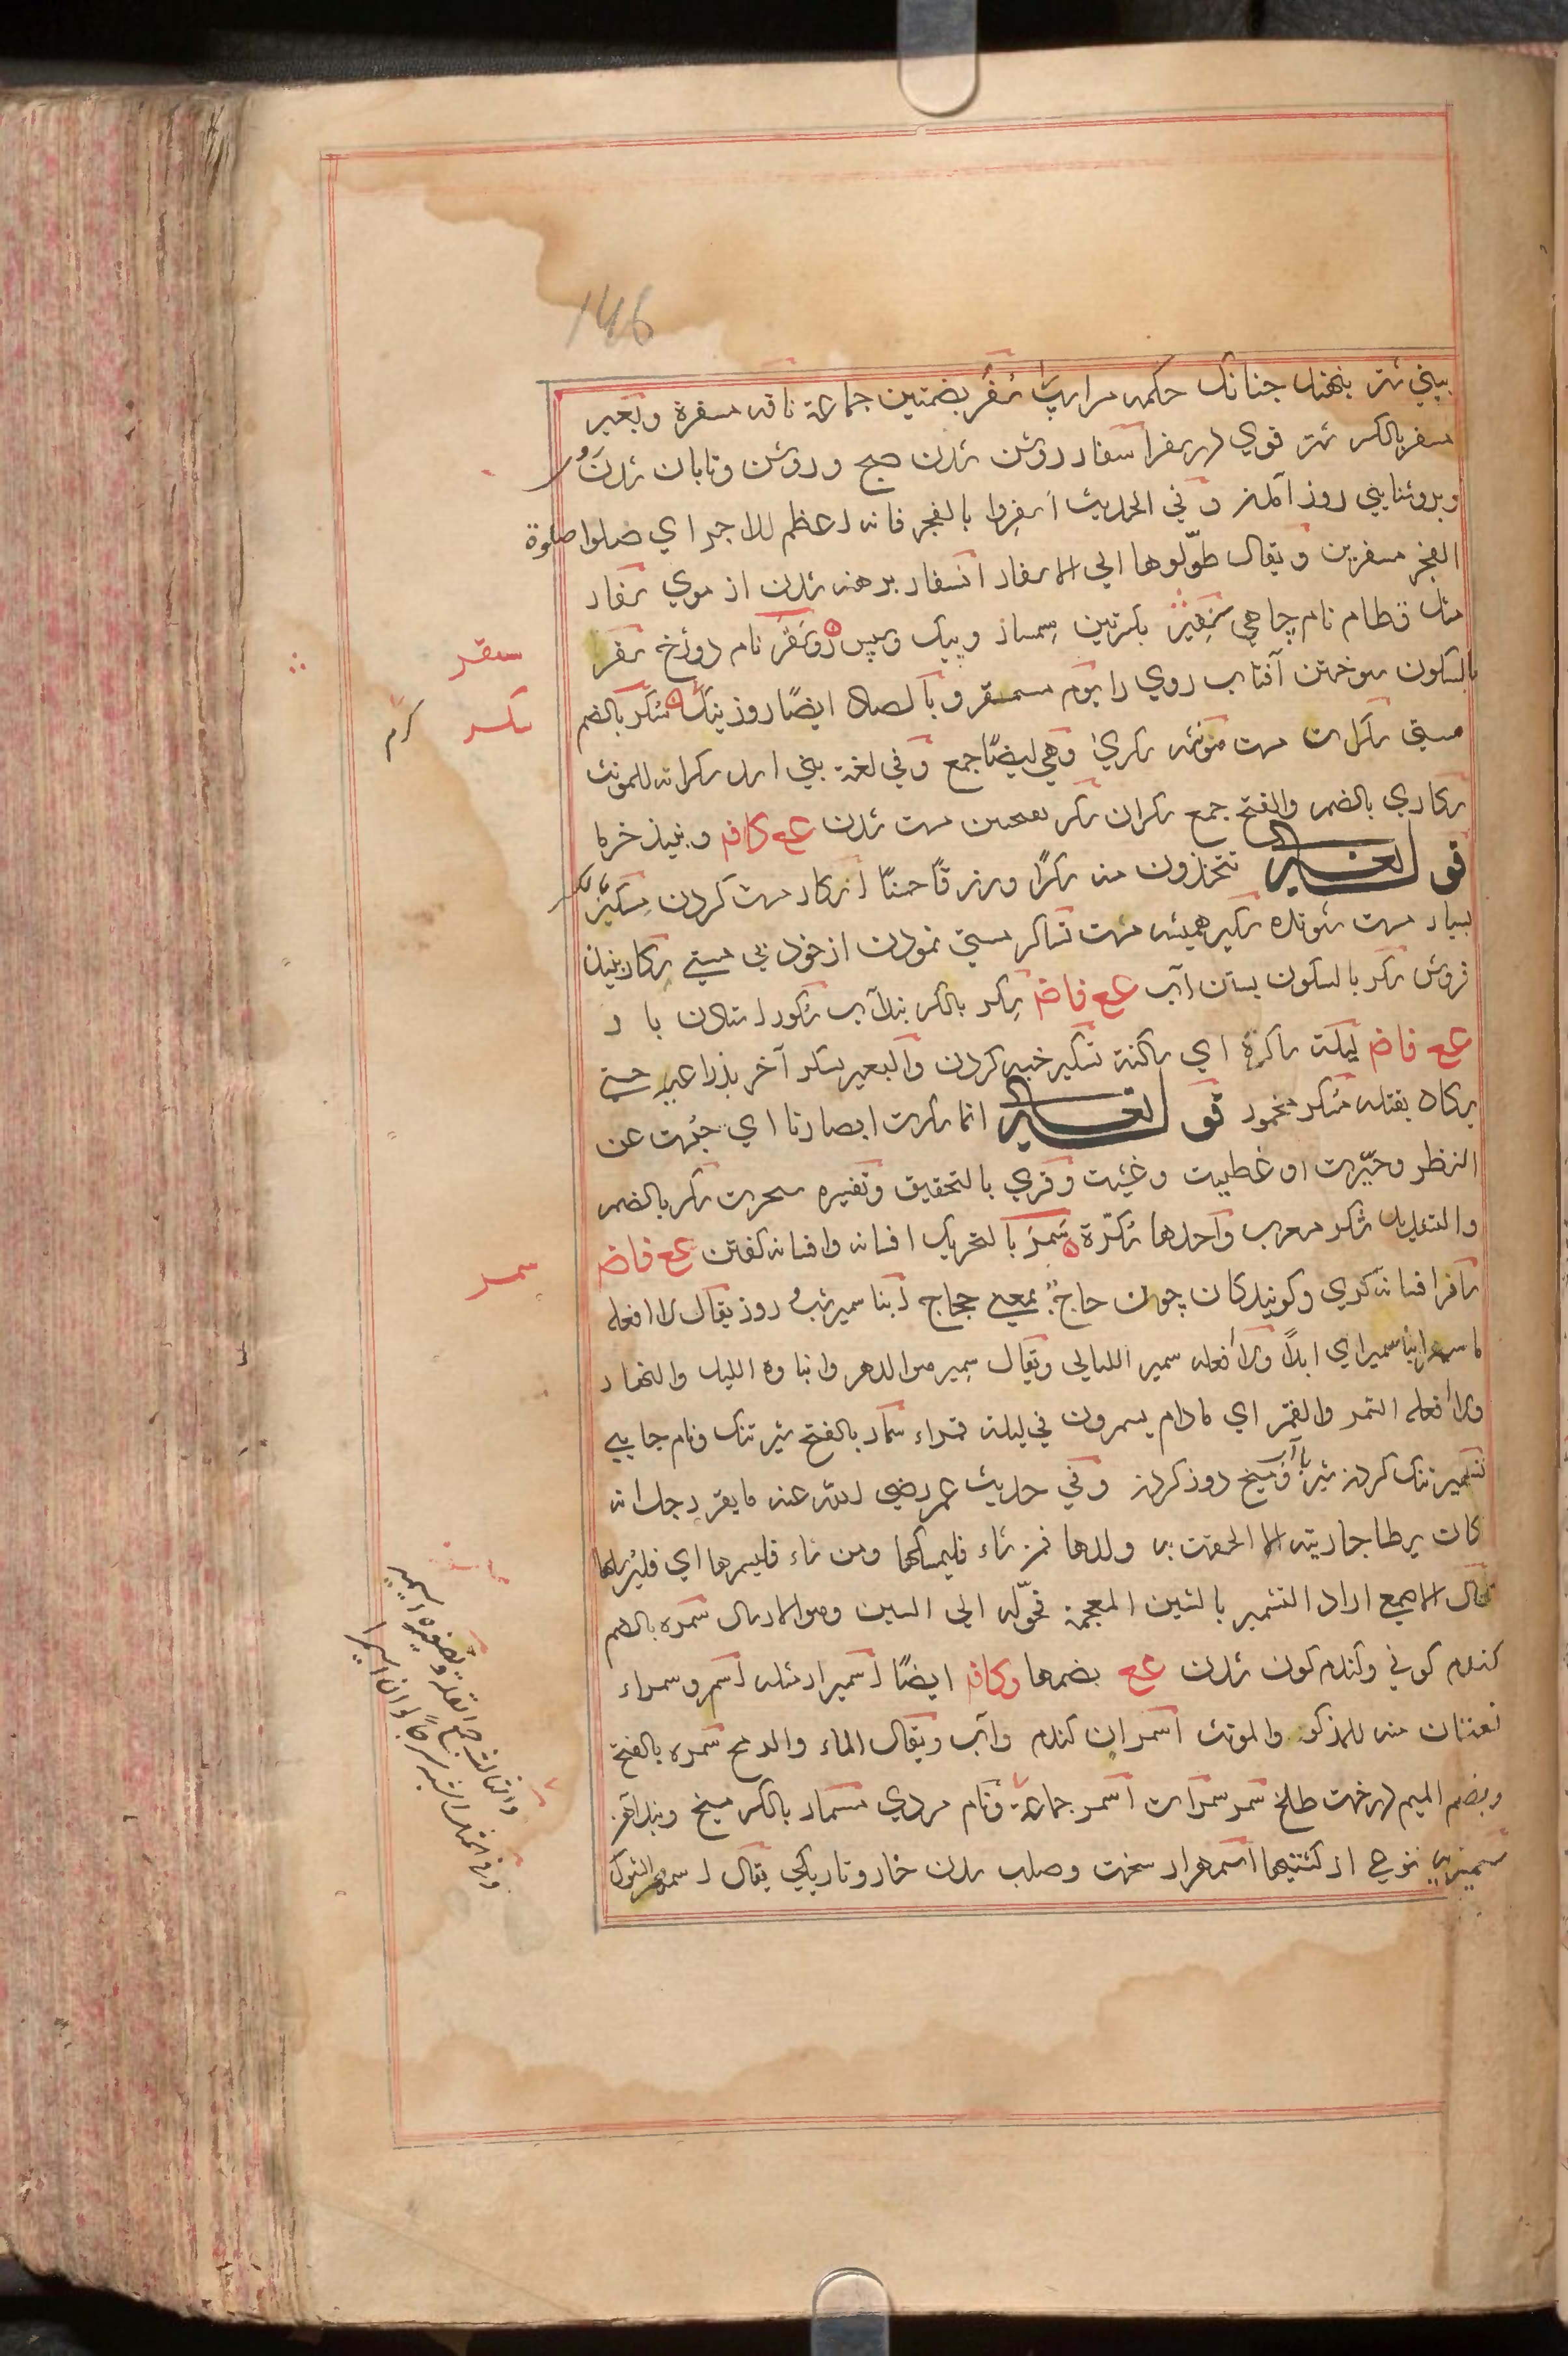 146
بيني شتر بنهند چنانك حكمه مر اسپ را سفر بضمتين جماعة ناقه مسفرة وبعير
مسفر بالكسر شتر قوي در سفر اسفار روشن شدن صبح وروشن وتابان شدن
وبروشنايي روز آمدن وفي الحديث اسفروا بالفجر فانه اعظم للاجر اي صلوا صلوة
الفجر مسفرين ويقال طوّلوها الي الاسفار انسفار برهنه شدن از موي سفار
مثل قطام نام چاهي سفسير بكسرتين سمسار وپيك سقر نام دوزخ سقر
بالسكون سوختن آفتاب روي را يوم مسمقر وبالصاد ايضًا روز سكر بالضم
مستي سكران مست مونثه سكري وهي ايضًا جمع وفي لغة بني اسد سكرانه للمونث
سكاري بالضم والفتح جمع سكران سكر بفتحتين مست شدن عع كافم ونبيذ خرما
قوله تعالي تتخذون منه سكرًا ورزقًا حسنًا اسكار مست كردن مسكير
بسيار مست شونده سكير هميشه مست تساكر مستي نمودن از خود بي مستي سكار نبيذ
فروش سكر بالسكون بستن آب عع فاضم سكر بالكسر بند آب سكور استادن باد
عع فاضم ليلة ساكرة اي ساكنة تسكير خبه كردن والبعير سكر آخر بذراعيه حتي
كاد يقتله مسكر مخمور قوله تعالي انما سكرت ابصارنا اي حبست عن
النظر وحيّرت او غطيت وغشيت وقري بالتحقيق وتفسيره سحرت سكر بالضم
والتشديد شكر معرب واحدها سكّرة سمر بالتحريك افسانه وافسانه كفتن عع فاضم
سامر افسانه كوي وكويندكان چون حاج بمعني حجاج ابنا سمير شب وروز يقال لا افعله
ما سمر ابنا سمير اي ابدًا ولا افعله سمير الليالي ويقال سمير هو الدهر وابناوه الليل والنهار
ولا افعله السمر والقمر اي مادام يسمرون في ليلة قمراء سمار بالفتح شير تنك ونام جايي
تسمير تنك كردن شير بآب وميخ دوز كردن وفي حديث عمر رضي الله عنه ما يقر رجل انه
كان يطا جاريته الا الحقت به ولدها فمن شاء فليمسكها ومن شاء فليسمرها اي فليرسلها
قال الاصمعي اراد التشمير بالشين المعجمة فحوّله الي السين وهو الارسال سمره بالضم
كندم كوني وكندم كون شدن عع بضمها وكافم ايضًا اسميرار مثله اسمر وسمراء
نعتان منه للمذكر والمونث اسمران كندم وآب ويقال الماء والرمح سمره بالفتح
وبضم الميم درخت طلح سمر سمرات اسمر جماعة ونام مردي مسمار بالكسر ميخ
سميريه نوعي از كشتيها اسمهرار سخت وصلب شدن خار وتاريكي يقال اسمهر الشوك
سقر
سكر
سمر